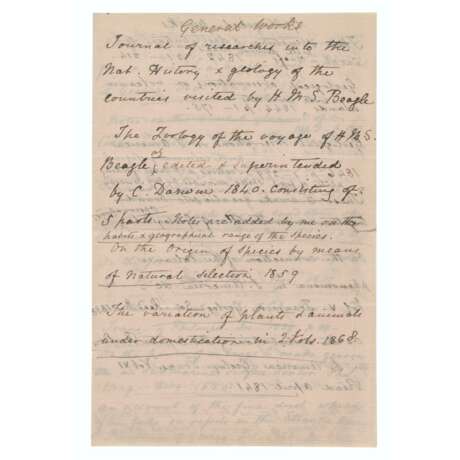 General works
Journal of researches into the
Nat. History & geology of the
countries visited by H.M.S. Beagle
The Zoology of the voyage of H.M.S.
Beagle edited & superintended
by C. Darwin 1840. consisting of
5 parts. Notes are added by me on the
habits & geographical range of the species.
On the Origin of Species by means
of Natural selection 1859
The variation of plants & animals
under domestication in 2 Vols. 1868